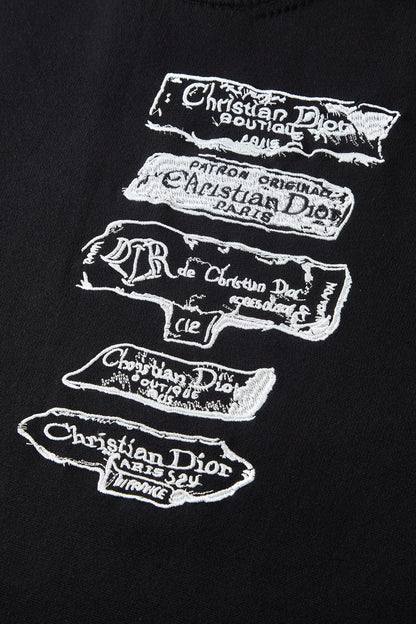 Christian Dior
BOUTIQUE
PARIS
PATRON ORIGINAL
Christian Dior
PARIS
de Christian Dior
C12
Christian Dior
BOUTIQUE
PARIS
Christian Dior
PARIS